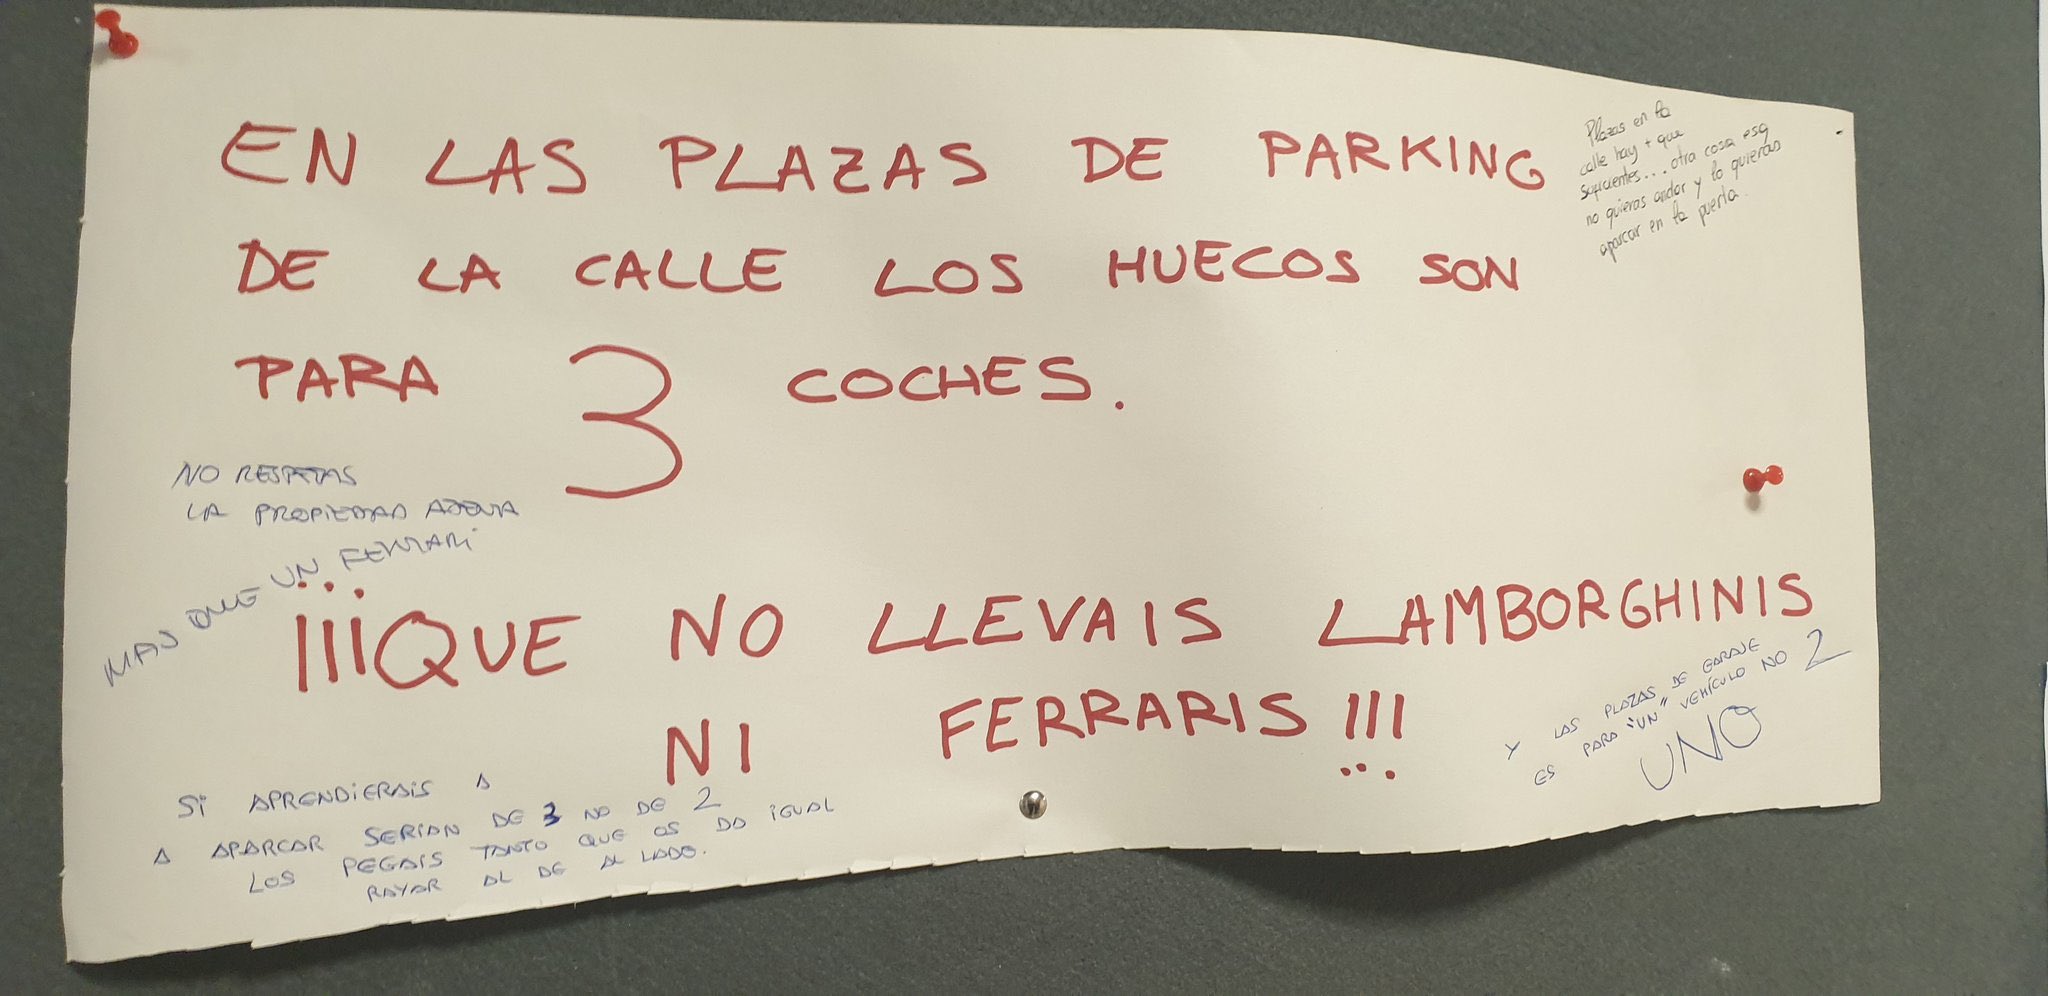 EN LAS PLAZAS DE PARKING
DE LA CALLE LOS HUECOS SON
PARA 3 COCHES.
¡¡¡QUE NO LLEVAIS LAMBORGHINIS
NI FERRARIS!!!
Plazas en la
calle hay + que
suficientes... otra cosa esq
no quieras andar y lo quieras
aparcar en la puerta.
NO RESPETAS
LA PROPIEDAD AJENA
MAS QUE UN FERRARI
Y LAS PLAZAS DE GARAJE
ES PARA "UN" VEHÍCULO NO 2
UNO
Si APRENDiERAiS A
A APARCAR SERIAN DE 3 NO DE 2
LOS PEGAIS TANTO QUE OS DA iGUAL
RAYAR AL DE AL LADO.